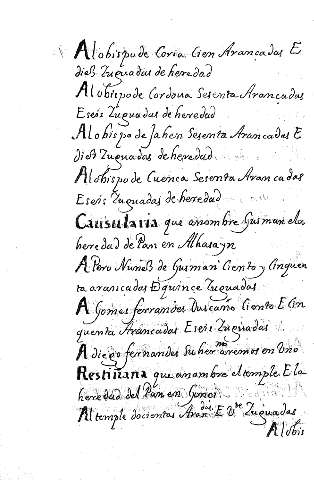 Al obispo de Coria Cien Arançadas E
dieß Zuguadas de heredad
Al obispo de Cordoua Sesenta Arançadas
E seis Zuguadas de heredad
Al obispo de Jahen Sesenta Arancadas E
dieß Zuguadas de heredad
Al obispo de Cuenca Sesenta Arancadas
E seis Zuguadas de heredad
Causularia que a nombre Gusman e la
heredad de Pan en Alhasayn
A Pero Nuñeß de Gusman Ciento y Cinquen
ta arancadas E quince Zuguadas
A Gomes ferrandes Duscaño Ciento E Cin
quenta Atrancadas E seis Zuguadas
A diego fernandes su hermº aremos en Uno
Restiñana que a nombre el temple E la
heredad del Pan en
Al temple docientas Aranᵈᵃˢ E Vᵗᵉ Zuguadas
Al obis